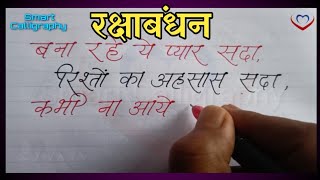 Smart
Calligraphy
रक्षाबंधन
बना रहे ये प्यार सदा,
रिश्तों का अहसास सदा,
कभी ना आये